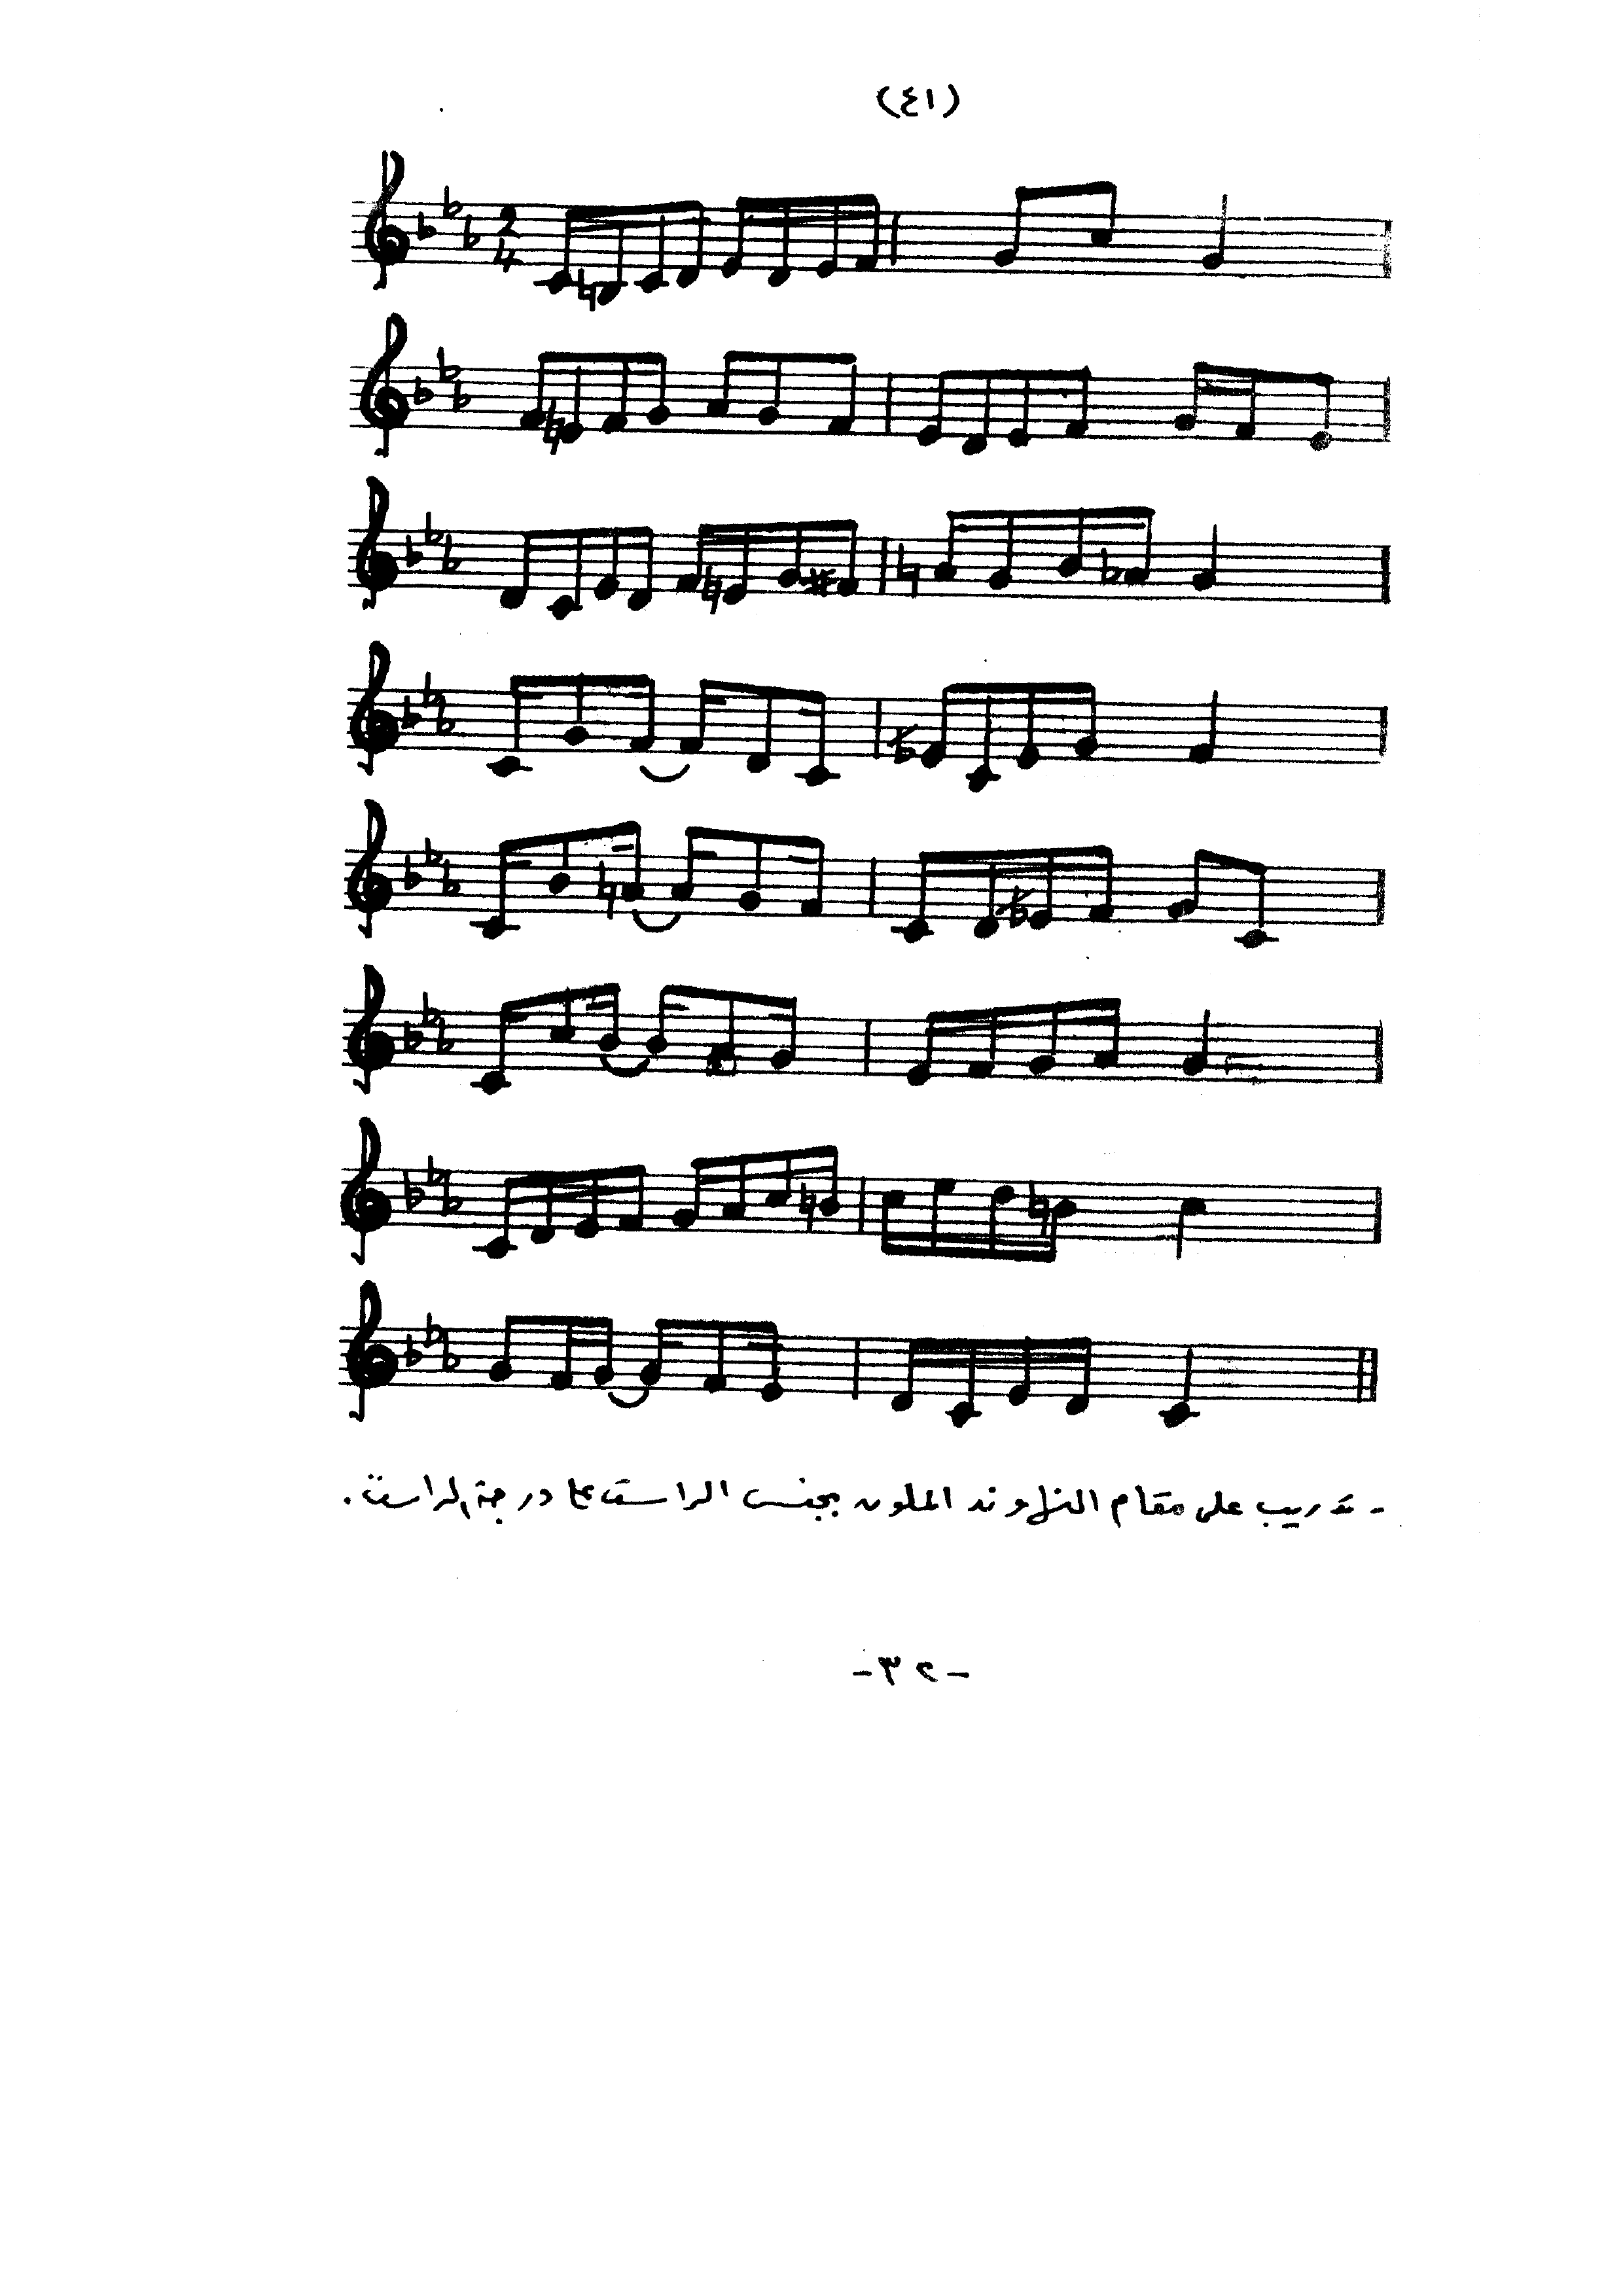 (٤١)
2
4
- تدريب على مقام النهاوند الملون بجنس الراست على درجة الراست.
- ٣٢ -